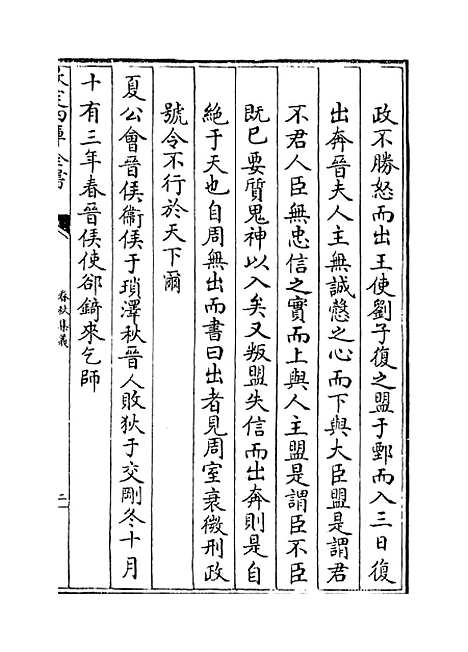 政不勝怒而出王使劉子復之盟于鄄而入三日復
出奔晉夫人主無誠慤之心而下與大臣盟是謂君
不君人臣無忠信之實而上與人主盟是謂臣不臣
既已要質鬼神以入矣又叛盟失信而出奔則是自
絶于天也自周無出而書曰出者見周室衰微刑政
號令不行於天下爾
夏公會晉侯衞侯于瑣澤秋晉人敗狄于交剛冬十月
十有三年春晉侯使郤錡來乞師
欽定四庫全書
春秋集義
二